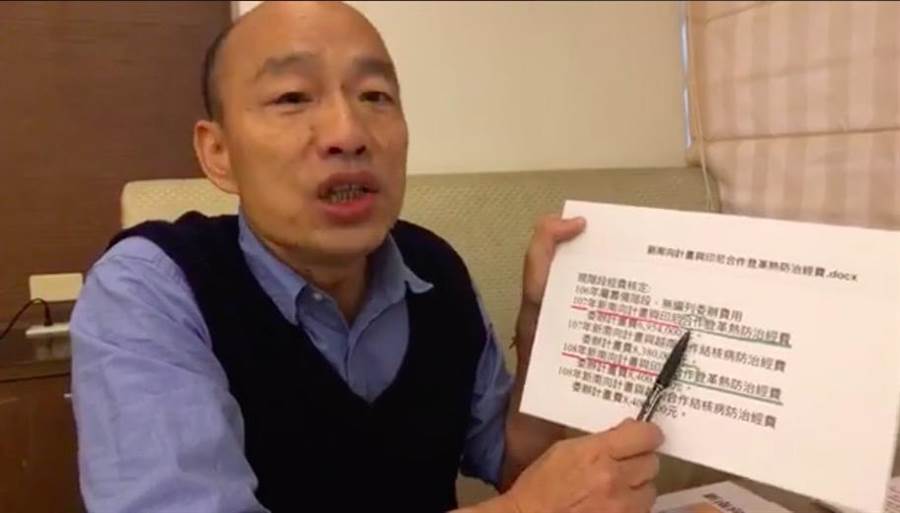 新南向計畫與印尼合作登革熱防治經費.docx
現階段經費核定:
106年屬籌備階段,無編列委辦費用
107年新南向計畫與印尼合作登革熱防治經費
委辦計畫費6,954,000
107年新南向計畫與越南 作結核病防治經費
委辦計畫費8,380,000元。
108年新南向計畫與印 合作登革熱防治經費
委辦計畫費8,400, 元。
108年新南向計畫與 合作結核病防治經費
委辦計畫費8,400, 00元。